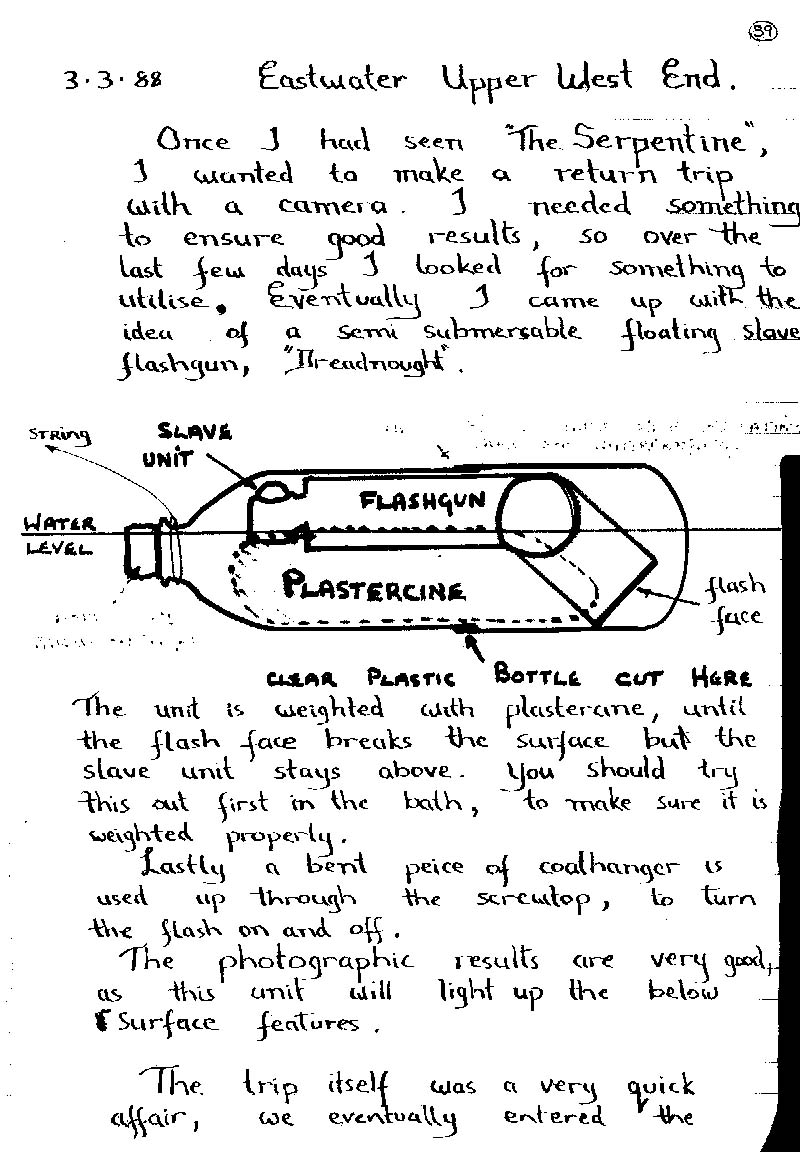 39
3·3·88 Eastwater Upper West End.
Once I had seen "The Serpentine",
I wanted to make a return trip
with a camera. I needed something
to ensure good results, so over the
last few days I looked for something to
utilise. Eventually I came up with the
idea of a semi submersable floating slave
flashgun, "Dreadnought".
STRING
SLAVE
UNIT
FLASHGUN
WATER
LEVEL
PLASTERCINE
flash
face
CLEAR PLASTIC BOTTLE CUT HERE
The unit is weighted with plastercine, until
the flash face breaks the surface but the
slave unit stays above. You should try
this out first in the bath, to make sure it is
weighted properly.
Lastly a bent peice of coathanger is
used up through the screwtop, to turn
the flash on and off.
The photographic results are very good,
as this unit will light up the below
surface features.
The trip itself was a very quick
affair, we eventually entered the